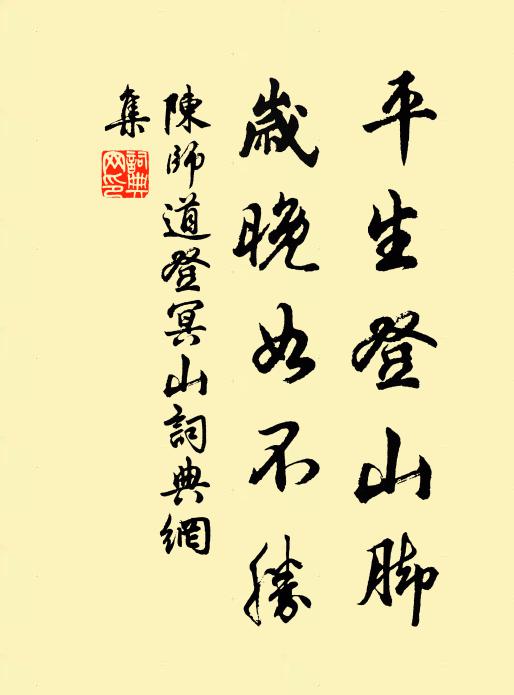 平生登山脚
歲晚如不勝
陳師道登冥山詞典網
集
詞典網印